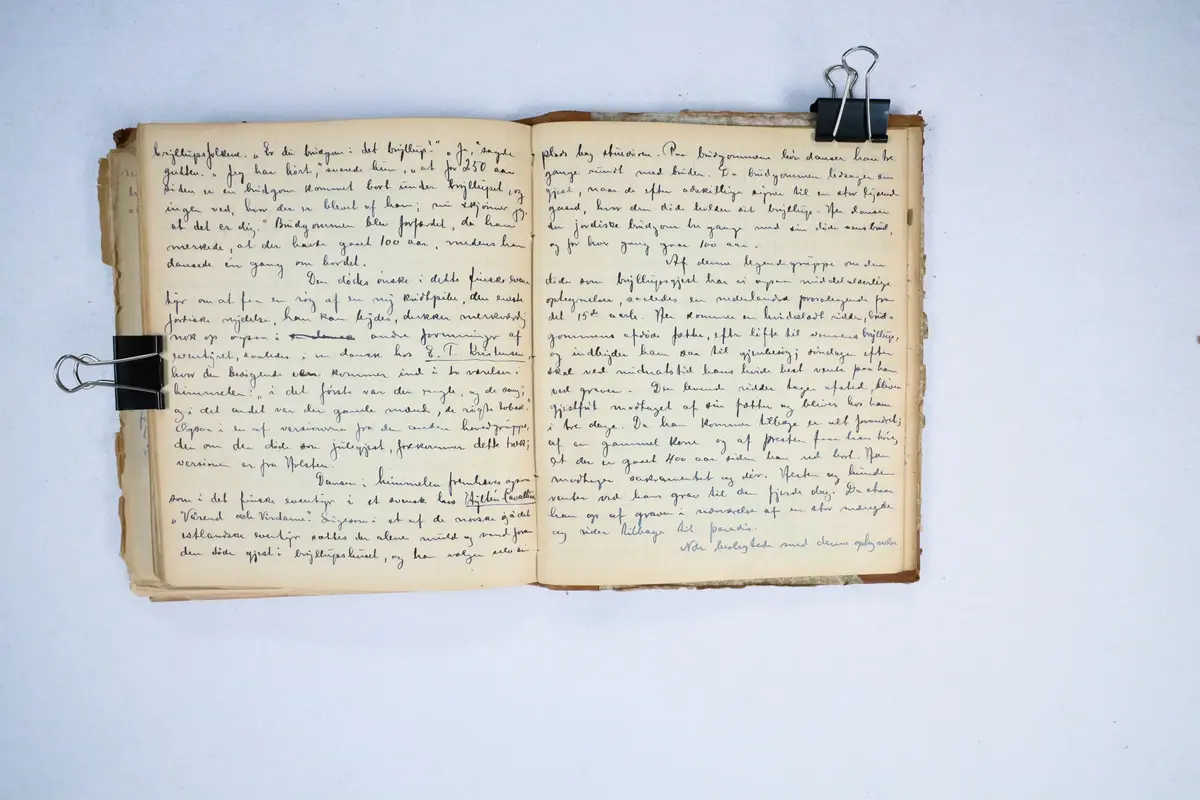 bryllupsfolkene. „Er du brudgom i det bryllup?" „Ja," sagde
gutten. „Jeg har hørt," svarede hun, „at for 250 aar
siden er en brudgom kommet bort under bryllupet, og
ingen ved, hvor der er blevet af ham; nu skjønner jeg
at det er dig." Brudgommen blev forfærdet, da han
merkede, at der havde gaaet 100 aar, medens han
dansede én gang om bordet.
Den dødes ønske i dette finske even
tyr om at faa en røg af en ny kridtpibe, den eneste
jordiske nydelse, han kan
nok op ogsaa i andre formninger af
eventyret, saaledes i en dansk hos E. T. Kristensen,
hvor den besøgende kommer ind i to værelser i
himmelen: „i det første var den unge, og de sang;
og i det andet var der gamle mænd, de røgte tobak."
Ogsaa i en af versionerne fra den anden hovedgruppe,
den om den døde som julegjest, forekommer dette træk;
versionen er fra Holsten.
Dansen i himmelen fremhæves ogsaa
som i det finske eventyr i et svensk hos Hyltén-Cavallius
„Värend och Virdarne". Ligesom i et af de norske og i det
estlandske eventyr sættes der alene muld og vand foran
den døde gjest i bryllupshuset, og han vælger selv sin
plads bag stuedøren. Paa brudgommens bøn danser han tre
gange rundt med bruden. Da brudgommen ledsager sin
gjest, naar de efter adskillige syner til en stor lysende
gaard, hvor den døde holder sit bryllup. Her danser
den jordiske brudgom tre gange med sin døde vens brud,
og for hver gang gaar 100 aar.
Af denne legendegruppe om den
døde som bryllupsgjest har vi ogsaa middelalderlige
optegnelser, saaledes en nederlandsk prosalegende fra
det 15de aarh. Her kommer en hvidklædt ridder, brud-
gommens afdøde fætter, efter løfte til vennens bryllup,
og indbyder ham saa til gjenbesøg; søndagen efter
skal ved midnatstid hans hvide hest vente paa ham
ved graven. Den levende ridder tager afsted, bliver
gjestfrit modtaget af sin fætter og bliver hos ham
i tre dage. Da han kommer tilbage er alt forandret;
af en gammel kone og af presten faar han høre,
at der er gaaet 400 aar siden han red bort. Han
modtager sakramentet og dør. Hesten og hunden
venter ved hans grav til den fjerde dag. Da staar
han op af graven i nærværelse af en stor mængde
og rider tilbage til paradis.
Nær beslegtede med denne optegnelse